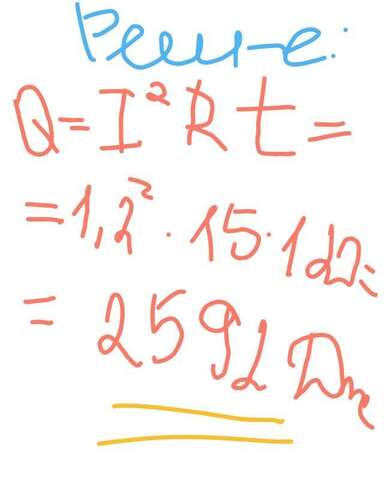 Реш-е:
Q=I²Rt=
=1,2²·15·120=
=2592 Дж